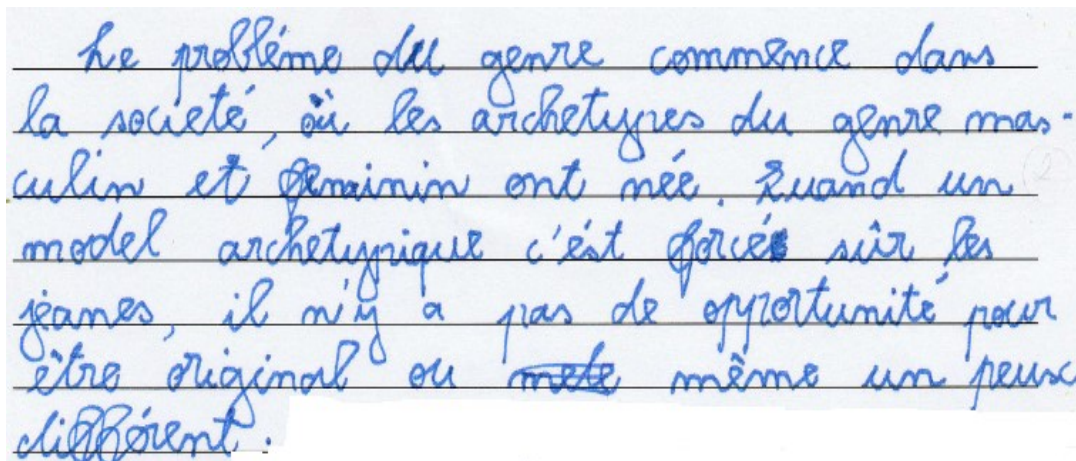 Le probléme du genre commence dans
la societé, où les archetypes du genre mas-
culin et feminin ont née. Quand un
model archetypique c'ést forcé sûr les
jeanes, il n'y a pas de opportunité pour
être original ou même un peux
différent.